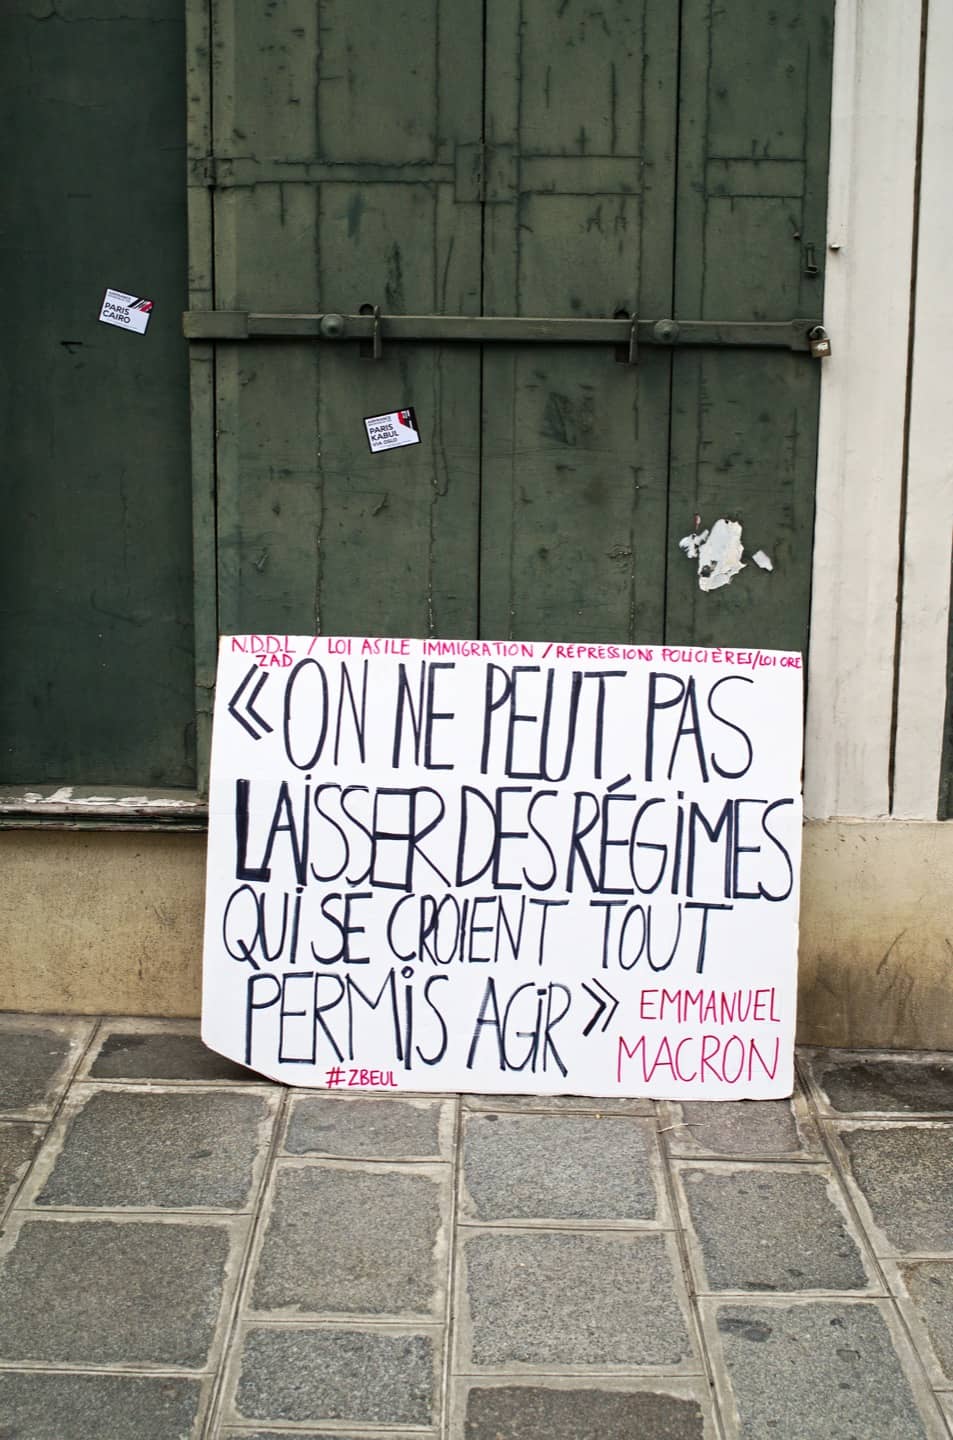 PARIS
CAIRO
PARIS
KABUL
VIA OSLO
N.D.D.L / LOI ASILE IMMIGRATION / RÉPRESSIONS POLICIÈRES/LOI ORE
ZAD
« ON NE PEUT PAS
LAISSER DES RÉGIMES
QUI SE CROIENT TOUT
PERMIS AGIR »
EMMANUEL
MACRON
#ZBEUL